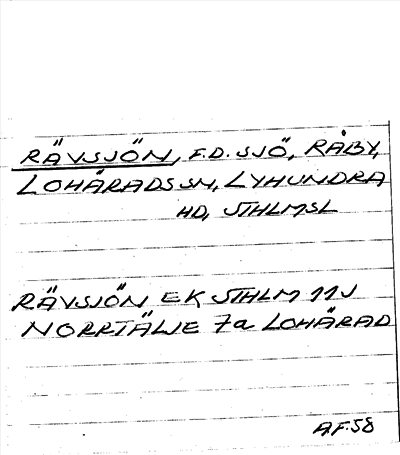 RÄVSJÖN, F.D. SJÖ, RÅBY,
LOHÄRADS SN, LYHUNDRA
HD, STHLMSL
RÄVSJÖN EK STHLM 11J
NORRTÄLJE 7a LOHÄRAD
A.F. 58